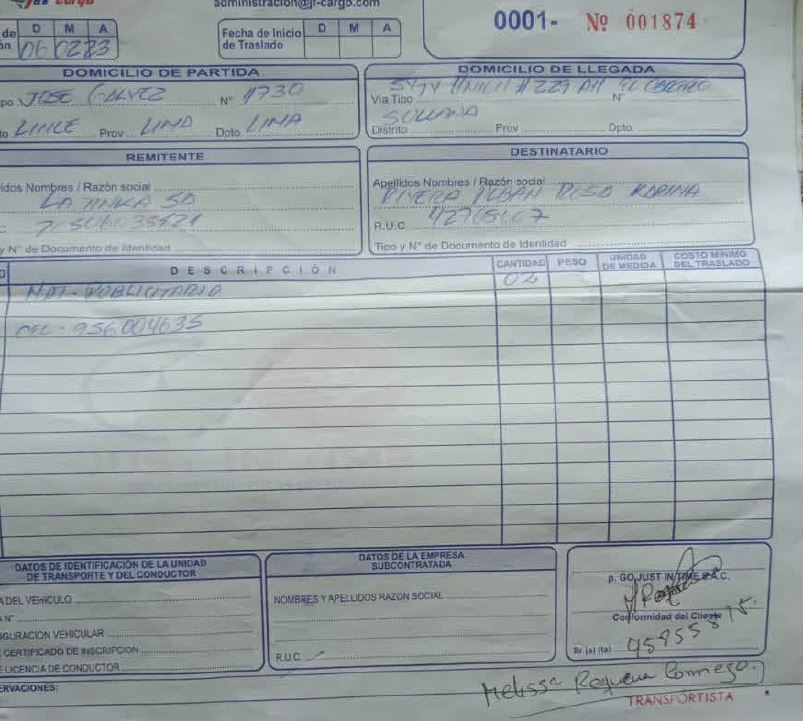 administracion@jr-cargo.com
0001- Nº 001874
de D M A
ón 06 02 23
Fecha de Inicio de Traslado D M A
DOMICILIO DE PARTIDA
JOSE GALVEZ Nº 1730
LINCE Prov LIMA Dpto. LIMA
DOMICILIO DE LLEGADA
Via Tipo #229 AH Nº
SULLANA
Distrito Prov Dpto.
REMITENTE
idos Nombres / Razón social
LA TINKA SA
y Nº de Documento de Identidad
DESTINATARIO
Apellidos Nombres / Razón social
RIVERA ROSA KARINA
R.U.C.
Tipo y Nº de Documento de Identidad
DESCRIPCIÓN CANTIDAD PESO UNIDAD DE MEDIDA COSTO MÍNIMO DEL TRASLADO
MAT. PUBLICITARIO 02
CEL. 956004635
DATOS DE IDENTIFICACIÓN DE LA UNIDAD
DE TRANSPORTE Y DEL CONDUCTOR
A DEL VEHÍCULO
A N°
IGURACIÓN VEHICULAR
E CERTIFICADO DE INSCRIPCION
E LICENCIA DE CONDUCTOR
DATOS DE LA EMPRESA
SUBCONTRATADA
NOMBRES Y APELLIDOS RAZON SOCIAL
R.U.C.
p. GO JUST IN TIME S.A.C.
Conformidad del Cliente
Sr (a) (ta)
ERVACIONES:
Melissa Requena
TRANSPORTISTA